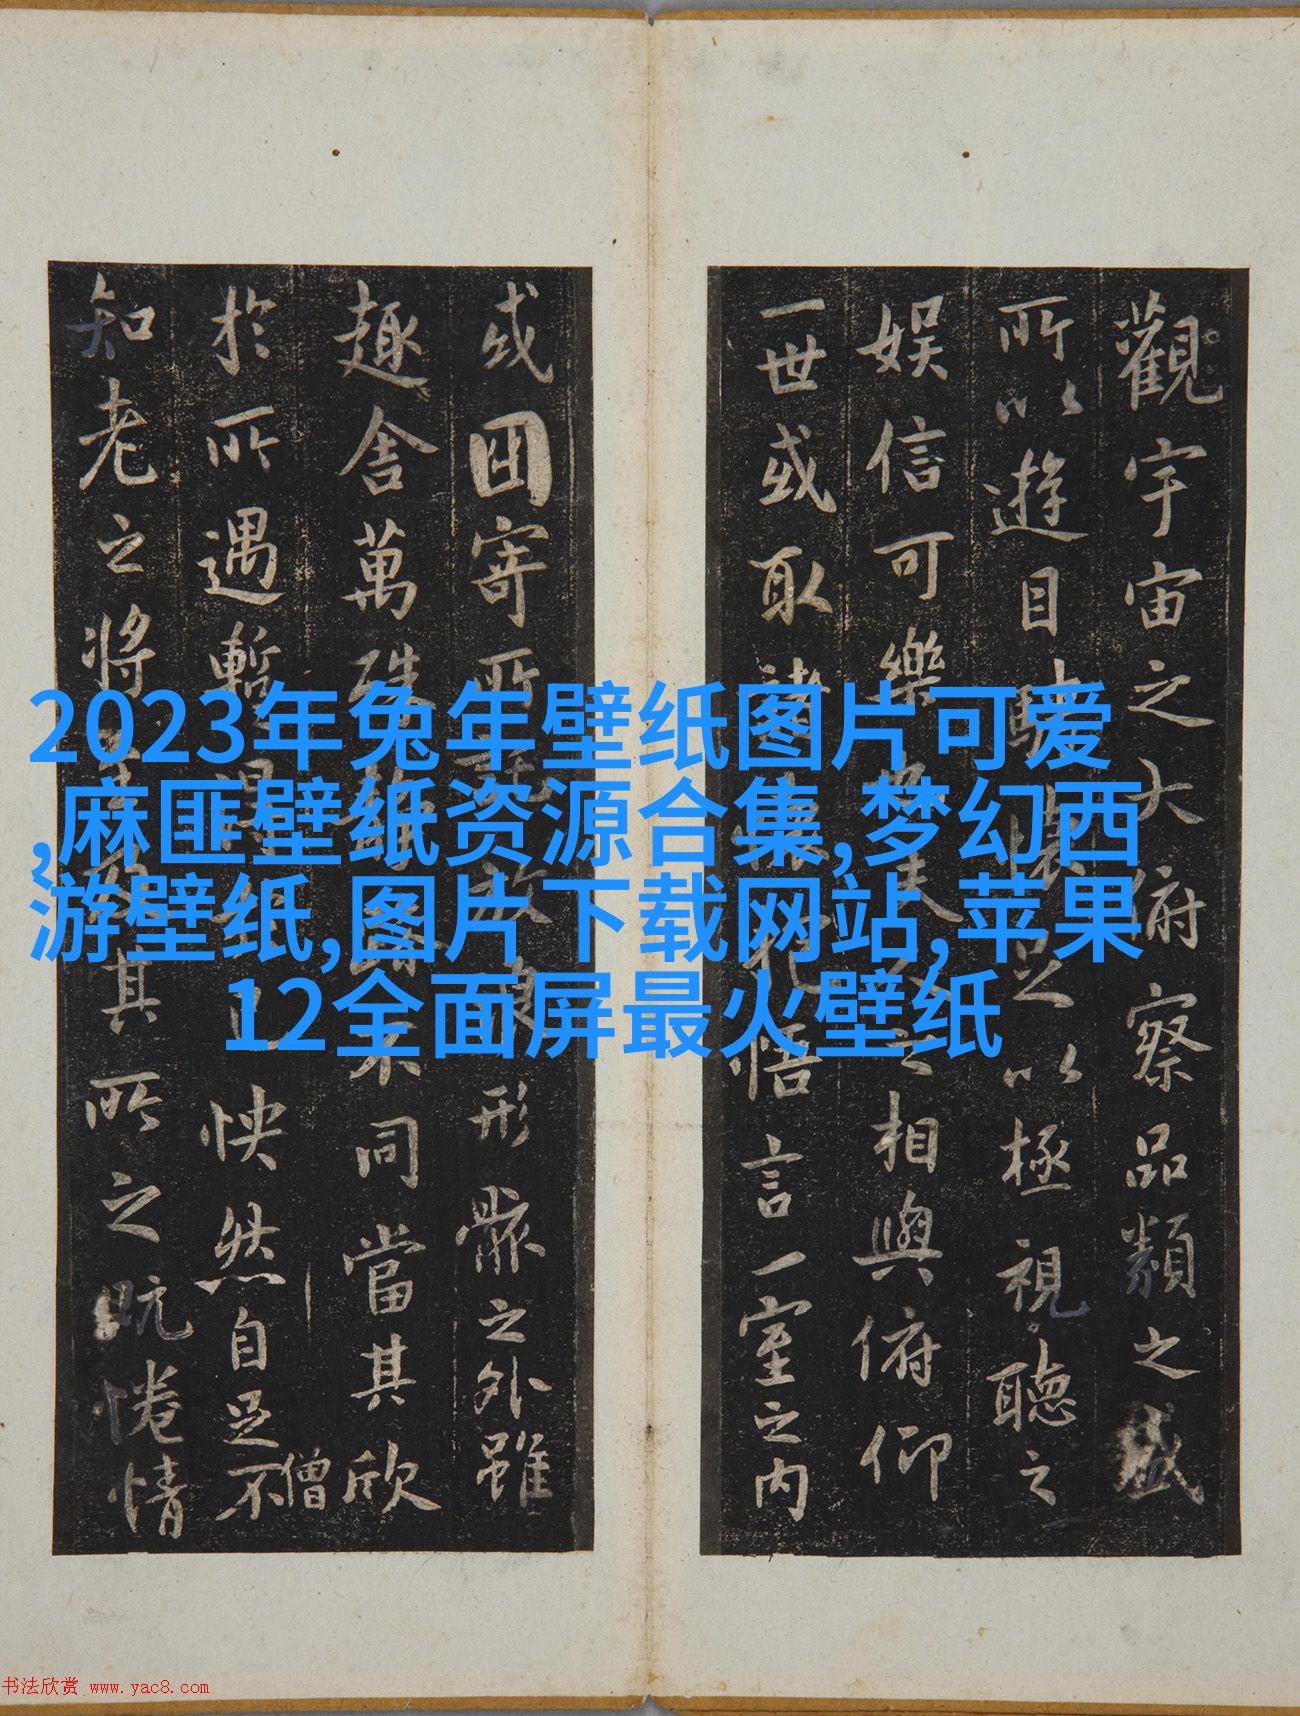 2023年兔年壁纸图片可爱
,麻匪壁纸资源合集,梦幻西
游壁纸,图片下载网站,苹果
12全面屏最火壁纸
觀宇宙之大俯察品類之盛
所以遊目騁懷足以極視聽之
娛信可樂夫人之相與俯仰
一世或取諸懷抱悟言一室之內
或因寄所託放浪形骸之外雖
趣舍萬殊靜躁不同當其欣
僧
於所遇暫得於己怏然自足不
知老之將至其所之既惓情
书法欣赏 www.yac8.com